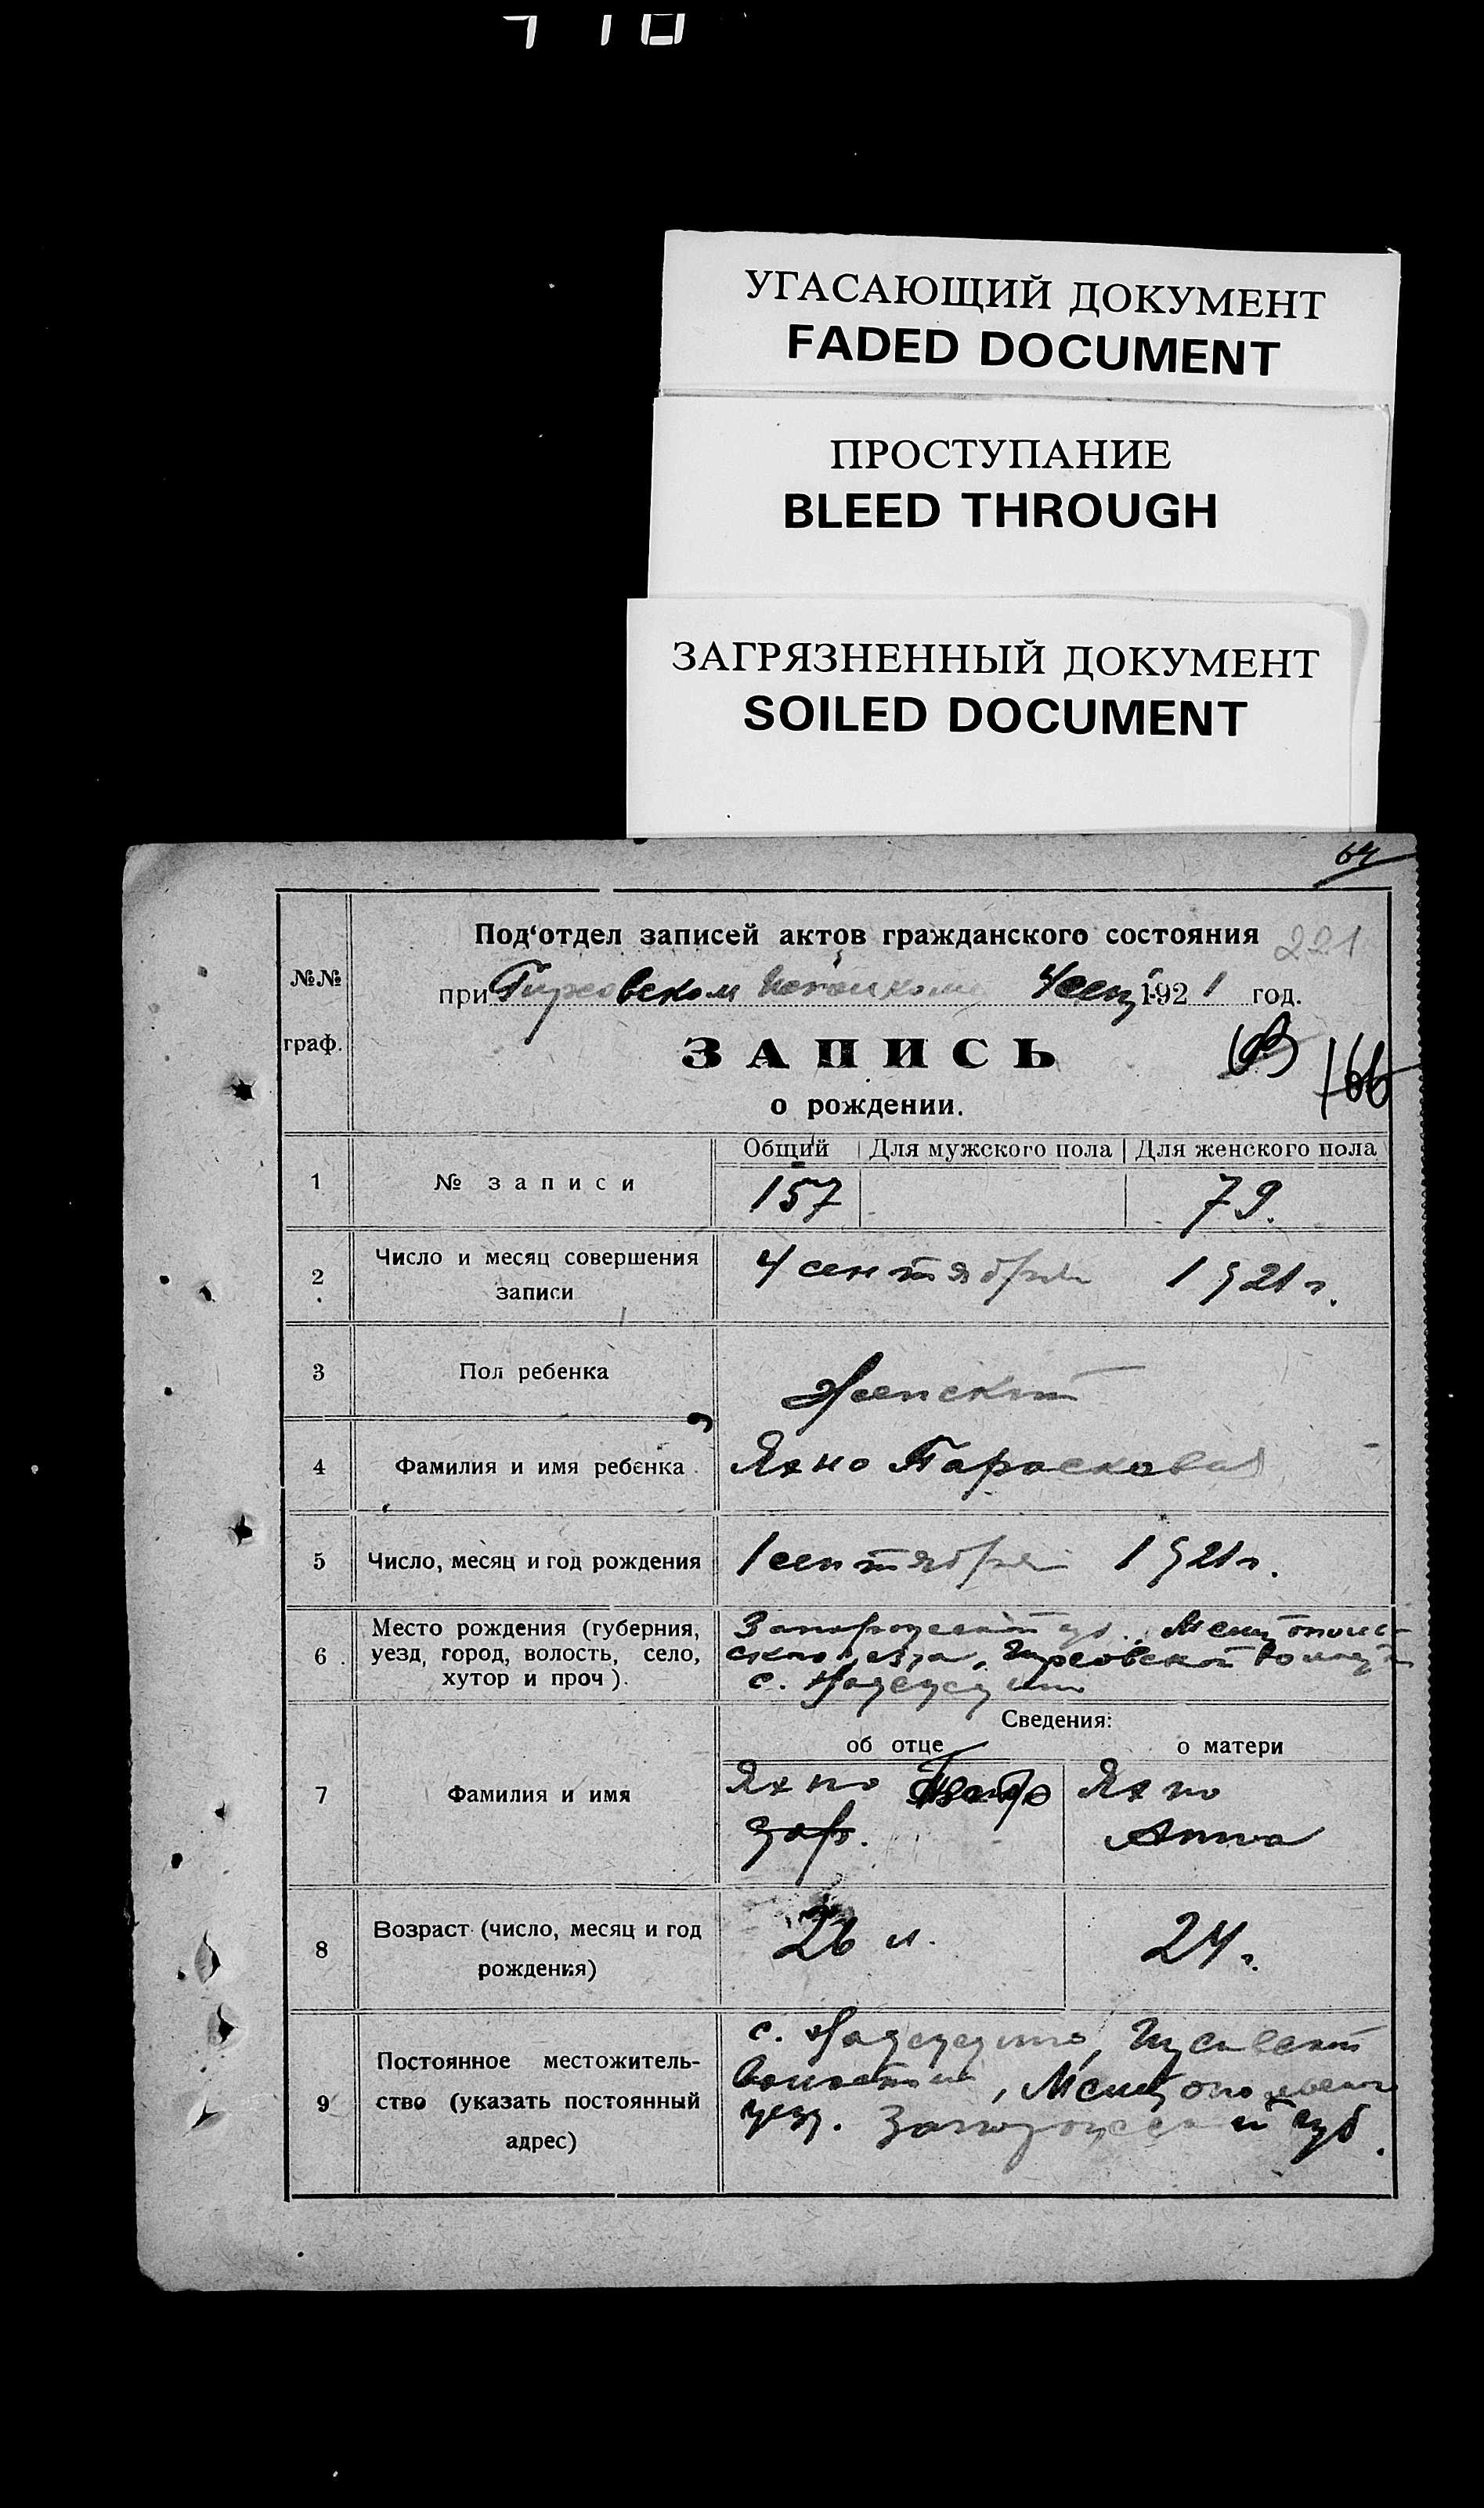 УГАСАЮЩИЙ ДОКУМЕНТ
FADED DOCUMENT
ПРОСТУПАНИЕ
BLEED THROUGH
ЗАГРЯЗНЕННЫЙ ДОКУМЕНТ
SOILED DOCUMENT
64
№№ граф.
Под‘отдел записей актов гражданского состояния
221
при 4 сент 1921 год.
ЗАПИСЬ
166
о рождении.
Общий Для мужского пола Для женского пола
1 № записи 157 79.
2 Число и месяц совершения записи 4 сентября 1921 г.
3 Пол ребенка Женский
4 Фамилия и имя ребенка Яхно Парасковия
5 Число, месяц и год рождения 1 сентября 1921 г.
6 Место рождения (губерния,
уезд, город, волость, село,
хутор и проч).
Запорожской губ. Мелитополь-
ского уезда,
с.
Сведения:
об отце о матери
7 Фамилия и имя Яхно Яхно
Анна
8 Возраст (число, месяц и год
рождения)
26 л. 24 г.
9 Постоянное местожитель-
ство (указать постоянный
адрес)
с.
волости, Мелитопольского
уезд. Запорожской губ.